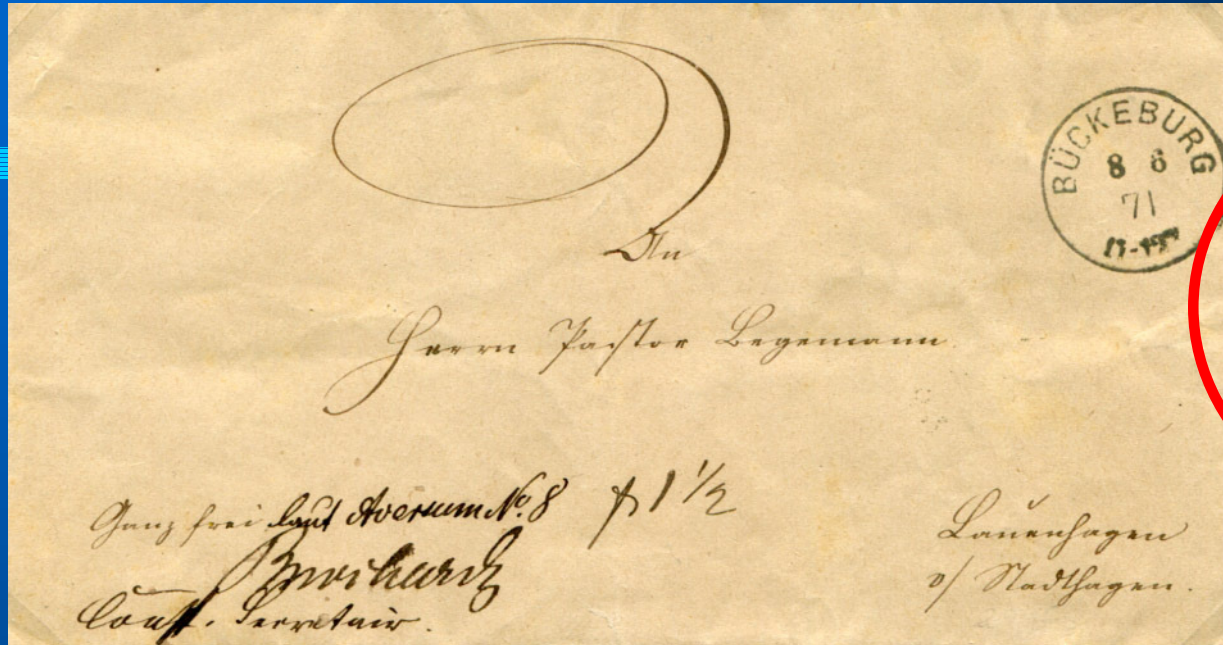 BÜCKEBURG
8 6
71
11-12
An
Herrn Pastor Begemann
Ganz frei laut Aversum No. 8
1 1/2
Burchard
Secretair.
Lauenhagen
Stadthagen.